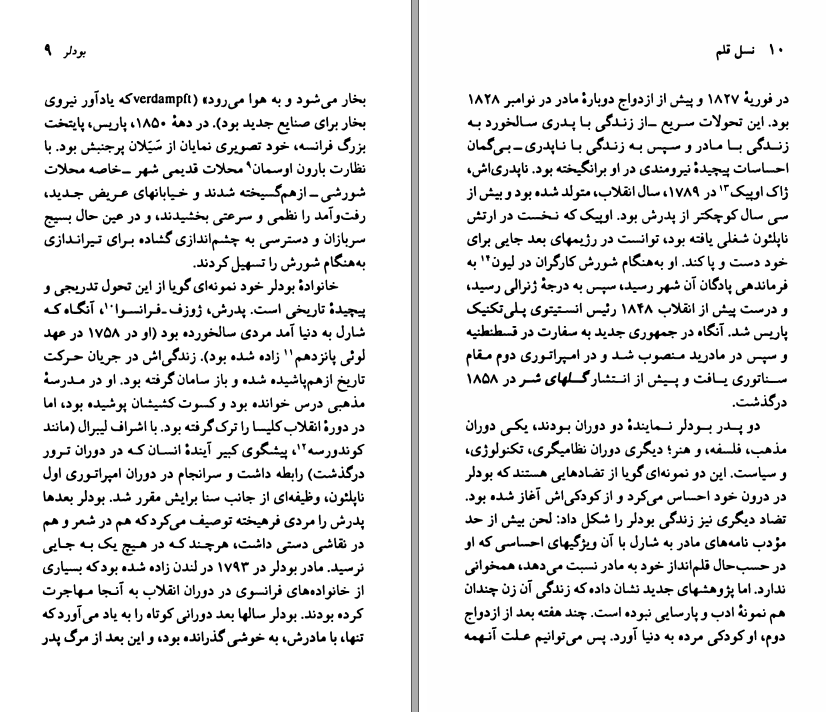 بودلر ۹
بخار می‌شود و به هوا می‌رود» (verdampft که یادآور نیروی
بخار برای صنایع جدید بود). در دههٔ ۱۸۵۰، پاریس، پایتخت
بزرگ فرانسه، خود تصویری نمایان از سَیَلان پرجنبش بود. با
نظارت بارون اوسمان۹ محلات قدیمی شهر ـ خاصه محلات
شورشی ـ ازهم‌گسیخته شدند و خیابانهای عریض جدید،
رفت‌وآمد را نظمی و سرعتی بخشیدند، و در عین حال بسیج
سربازان و دسترسی به چشم‌اندازی گشاده برای تیراندازی
به‌هنگام شورش را تسهیل کردند.
خانوادهٔ بودلر خود نمونه‌ای گویا از این تحول تدریجی و
پیچیدهٔ تاریخی است. پدرش، ژوزف ـ فرانسوا۱۰، آنگاه که
شارل به دنیا آمد مردی سالخورده بود (او در ۱۷۵۸ در عهد
لوئی پانزدهم۱۱ زاده شده بود). زندگی‌اش در جریان حرکت
تاریخ ازهم‌پاشیده شده و باز سامان گرفته بود. او در مدرسهٔ
مذهبی درس خوانده بود و کسوت کشیشان پوشیده بود، اما
در دورهٔ انقلاب کلیسا را ترک گرفته بود. با اشراف لیبرال (مانند
کوندورسه۱۲، پیشگوی کبیر آیندهٔ انسان که در دوران ترور
درگذشت) رابطه داشت و سرانجام در دوران امپراتوری اول
ناپلئون، وظیفه‌ای از جانب سنا برایش مقرر شد. بودلر بعدها
پدرش را مردی فرهیخته توصیف می‌کرد که هم در شعر و هم
در نقاشی دستی داشت، هرچند که در هیچ یک به جایی
نرسید. مادر بودلر در ۱۷۹۳ در لندن زاده شده بود که بسیاری
از خانواده‌های فرانسوی در دوران انقلاب به آنجا مهاجرت
کرده بودند. بودلر سالها بعد دورانی کوتاه را به یاد می‌آورد که
تنها، با مادرش، به خوشی گذرانده بود، و این بعد از مرگ پدر
۱۰ نسل قلم
در فوریهٔ ۱۸۲۷ و پیش از ازدواج دوبارهٔ مادر در نوامبر ۱۸۲۸
بود. این تحولات سریع ـ از زندگی با پدری سالخورد به
زندگی با مادر و سپس به زندگی با ناپدری ـ بی‌گمان
احساسات پیچیدهٔ نیرومندی در او برانگیخته بود. ناپدری‌اش،
ژاک اوپیک۱۳ در ۱۷۸۹، سال انقلاب، متولد شده بود و بیش از
سی سال کوچکتر از پدرش بود. اوپیک که نخست در ارتش
ناپلئون شغلی یافته بود، توانست در رژیمهای بعد جایی برای
خود دست و پا کند. او به‌هنگام شورش کارگران در لیون۱۴ به
فرماندهی پادگان آن شهر رسید، سپس به درجهٔ ژنرالی رسید،
و درست پیش از انقلاب ۱۸۴۸ رئیس انستیتوی پلی‌تکنیک
پاریس شد. آنگاه در جمهوری جدید به سفارت در قسطنطنیه
و سپس در مادرید منصوب شد و در امپراتوری دوم مقام
سناتوری یافت و پیش از انتشار گلهای شر در ۱۸۵۸
درگذشت.
دو پدر بودلر نمایندهٔ دو دوران بودند، یکی دوران
مذهب، فلسفه، و هنر؛ دیگری دوران نظامیگری، تکنولوژی،
و سیاست. این دو نمونه‌ای گویا از تضادهایی هستند که بودلر
در درون خود احساس می‌کرد و از کودکی‌اش آغاز شده بود.
تضاد دیگری نیز زندگی بودلر را شکل داد: لحن بیش از حد
مؤدب نامه‌های مادر به شارل با آن ویژگیهای احساسی که او
در حسب‌حال قلم‌انداز خود به مادر نسبت می‌دهد، همخوانی
ندارد. اما پژوهشهای جدید نشان داده که زندگی آن زن چندان
هم نمونهٔ ادب و پارسایی نبوده است. چند هفته بعد از ازدواج
دوم، او کودکی مرده به دنیا آورد. پس می‌توانیم علت آنهمه